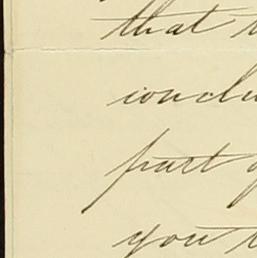 that
conclu
part
you